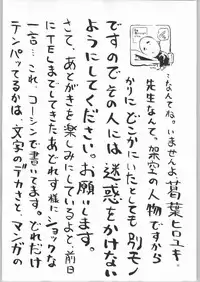 …なんてね。いませんよ、葛葉ヒロユキ
先生なんて。架空の人物ですから
かりにどこかにいたとしても別モノ
ですのでその人には迷惑をかけない
ようにしてください。お願いします。
さて、あとがきを楽しみにしているよと、前日
にTELまでしてきたあどれす様にショックな
一言…これ、コーシンで書いてます。どれだけ
テンパッてるかは、文字のデカさと、マンガの